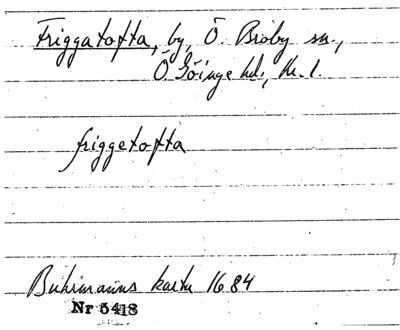 Friggatofta, by, Ö. Broby sn.,
Ö. Göinge hd., Kr. l.
friggetofta
Buhrmanns karta 1684
Nr 5418